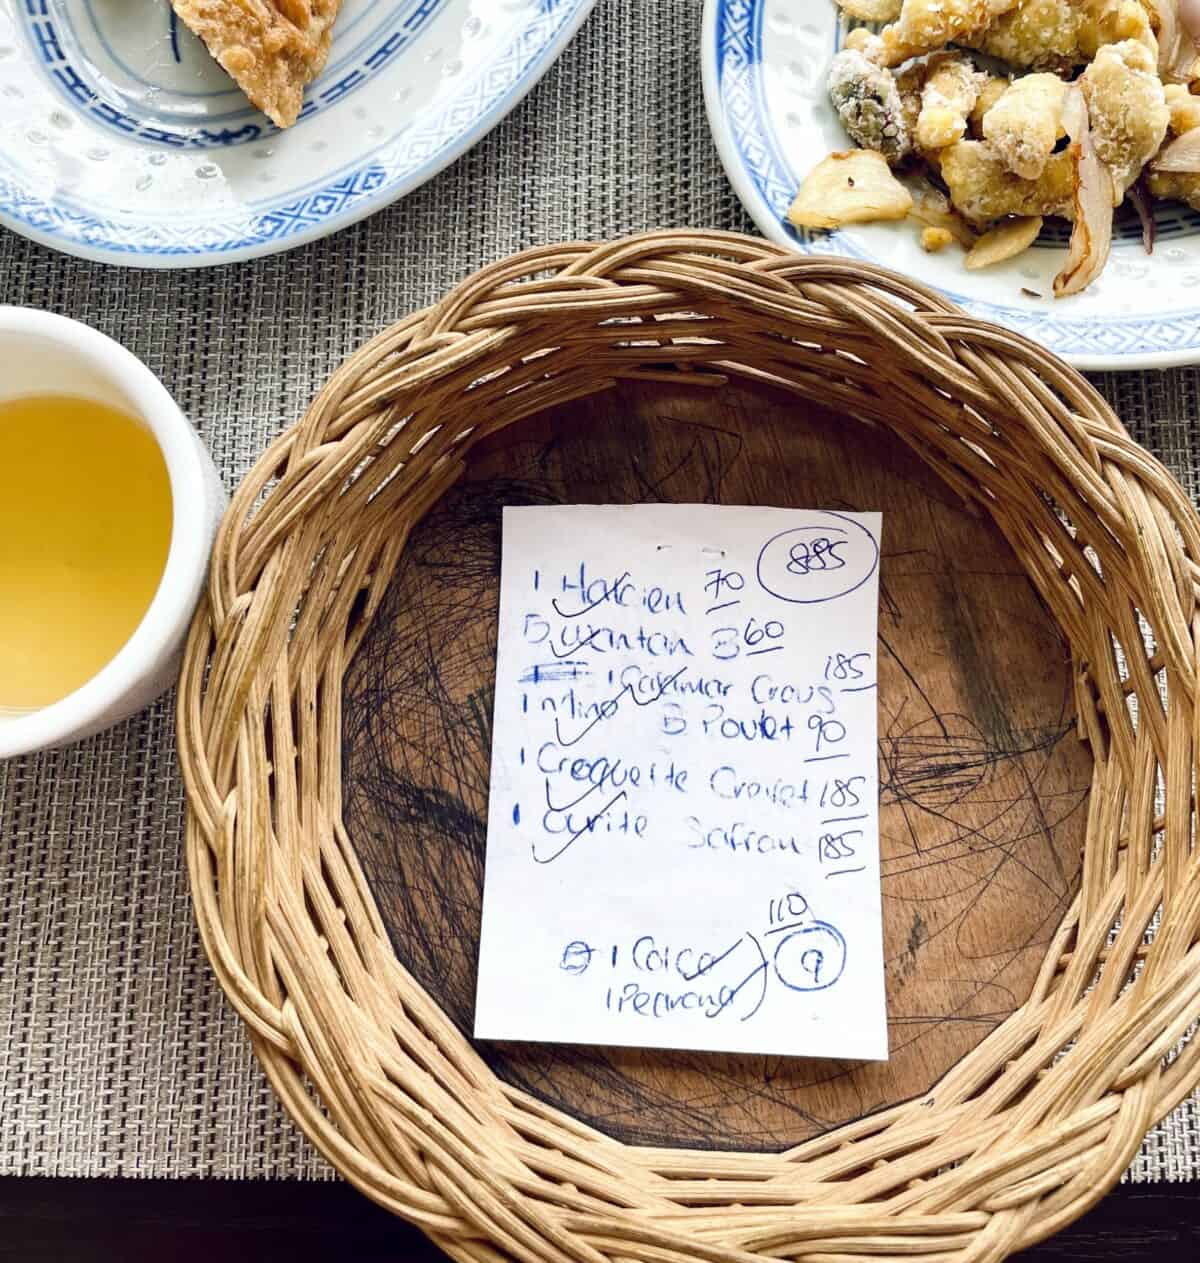 885
1 Halcien 70
5 uxintan B 60
1 Calimar Craus 185
1 Mino B Poulet 90
1 Croquette Crevet 185
1 Cyrite Safran 185
110
1 Coica 9
1